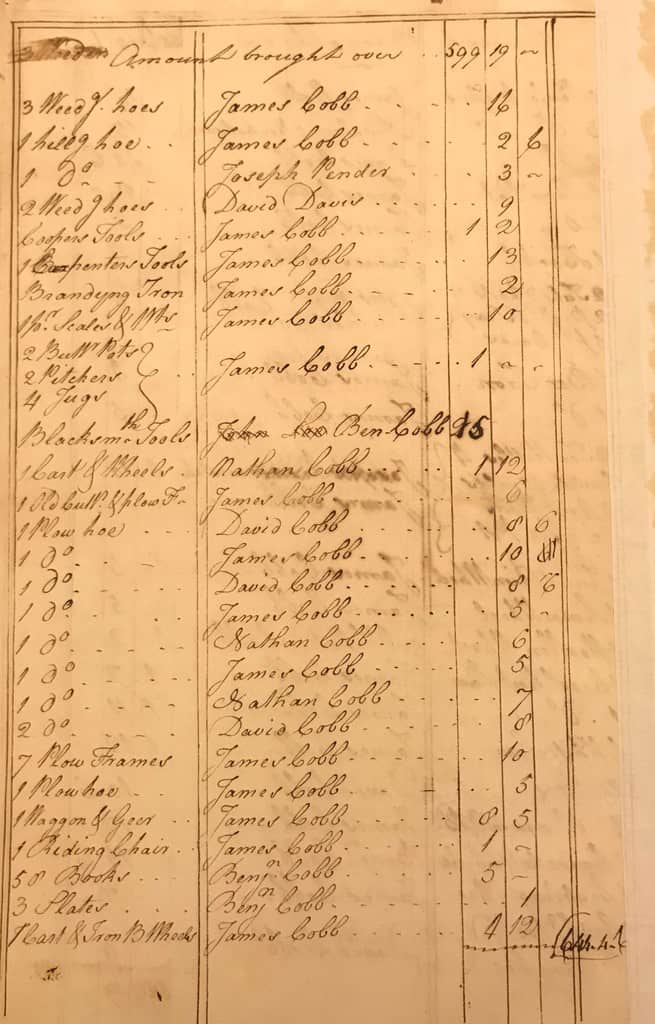 Amount brought over .. 599 19 ~
3 Weedg. hoes James Cobb . - . - . 16
1 hillg hoe .. James Cobb . - - . 2 6
1 Do - - Joseph Pender . . 3 ~
2 Weedg hoes .. David Davis . . . . . 9
Coopers Tools ... James Cobb . . 1 2
1 Carpenters Tools James Cobb . - - . 13
Brandyng Iron James Cobb . - - . 2
1 pr. Scales & Wts James Cobb . . . . 10
2 Buttr Pots
2 Pitchers James Cobb . . . . 1 ~ -
4 Jugs
Blacksmth Tools Ben Cobb 15
1 Cart & Wheels . Nathan Cobb . . . 1 12
1 Old Cutt. & plow F~ James Cobb . 6
1 Plow hoe - - - David Cobb . . . . 8 6
1 Do . - . James Cobb . - - . 10
1 Do . - - . David Cobb . . . . 8 6
1 Do . . . James Cobb . . . . . . 5 -
1 Do . - - - Nathan Cobb . . . . 6
1 Do . - - - James Cobb . . . . 5
1 Do . . - - Nathan Cobb . . - - 7
2 Do . - - . David Cobb . . . . 8
7 Plow Frames James Cobb . . . . . 10
1 Plow hoe . - . James Cobb . . - . . 5
1 Waggon & Geer . James Cobb . . . 8 5
1 Riding Chair . . James Cobb . . . 1 ~
58 Books . . . . Benjn Cobb . . . 5 -
3 Slates . . . . Benjn Cobb . . . . 1
1 Cart & Iron B Wheels James Cobb . . . 4 12